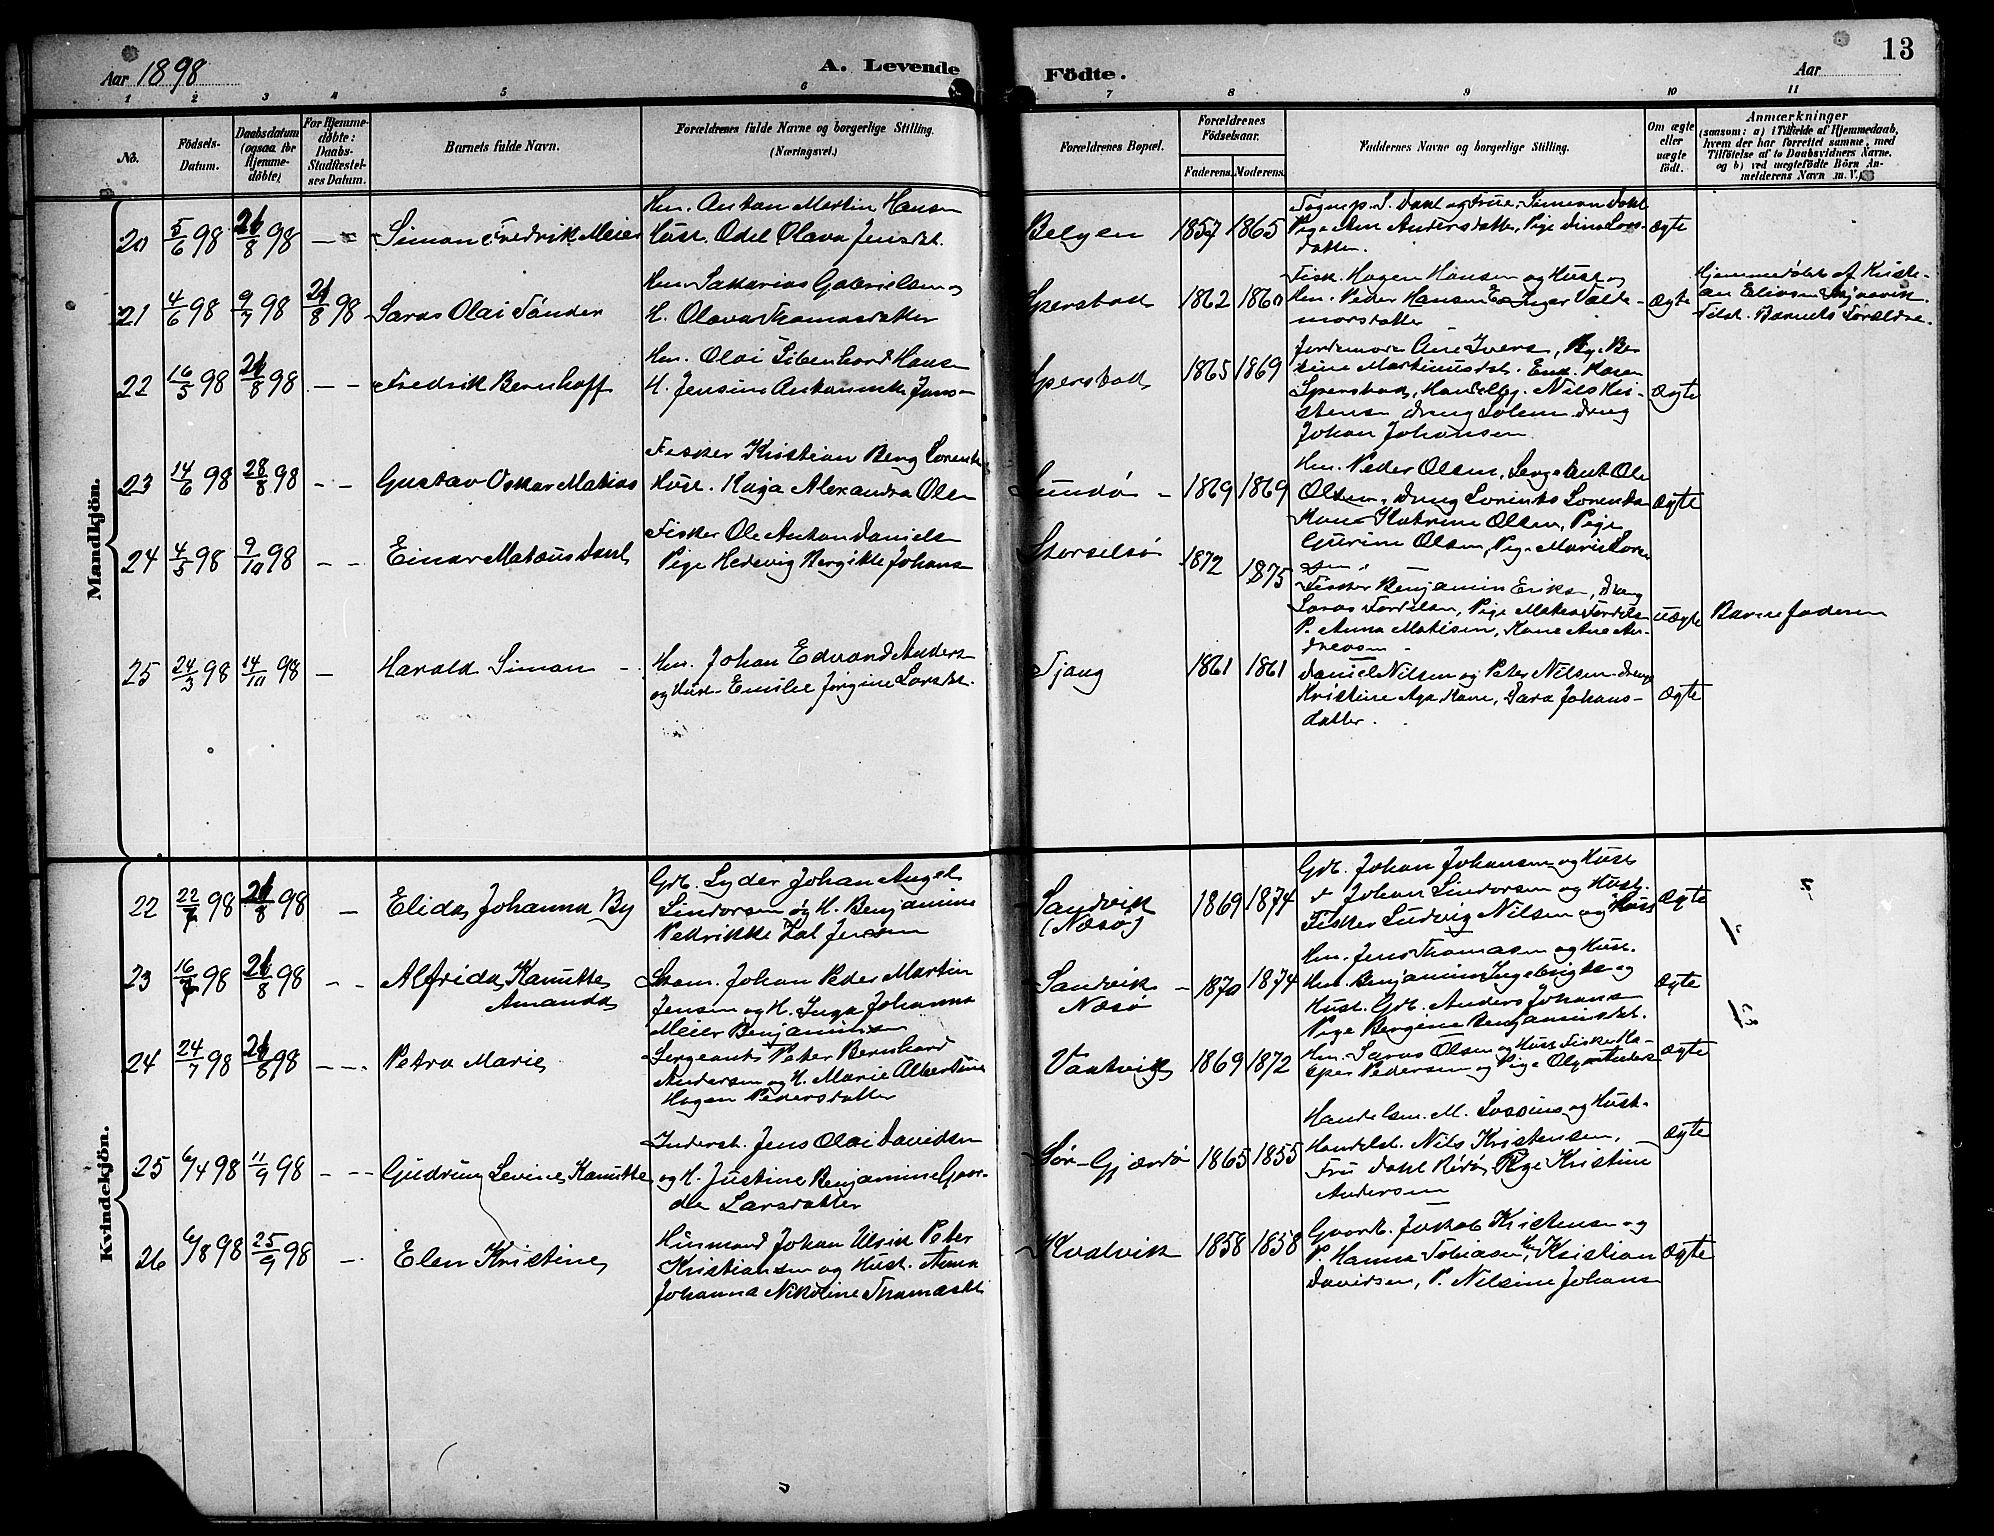 Aar 1898
A. Levende
Födte.
Aar
13
1 2 3 4 5 6 7 8 9 10 11
No.
Födsels-Datum.
Daabsdatum (ogsaa for Hjemme-döbte)
For Hjemme-døbte: Daabs-Stadfestel-ses Datum.
Barnets fulde Navn.
Forældrenes fulde Navne og borgerlige Stilling.
(Næringsvei.)
Forældrenes Bopæl.
Forældrenes Födselsaar.
Faderens. Moderens.
Faddernes Navne og borgerlige Stilling.
Om ægte eller uægte født.
Anmærkninger
(saasom: a) i Tilfælde af Hjemmedaab,
hvem der har forrettet samme, med
Tilföielse af to Daabsvidners Navne.
og b) ved uægtefödte Börn An-
melderens Navn m. V.)
Mandkjön.
20 5/6 98 21/8 98 – – Simon Fredrik Meier
Hm. Anton Martin Hansen
Hust. Odel Olava Jensdt.
Belgen 1857 1865
Pige Ane Andersdatter, Pige Dina Lars-
datter.
ægte
21 4/6 98 9/7 98 21/8 98 Laras Olai Tønder
Hm. Sakarias Gabrielsen og
H. Olava Thomasdatter
Sperstad 1862 1860
Fisk. Hagen Hansen og Hust og
Hm. Peder Hansen Inger Valde-
morsdatter
ægte
Hjemmedøbt af Kristi-
an Eliasen
Tilst. Barnets Forældre.
22 16/5 98 21/8 98 – – Fredrik Bernhoff
Hm. Olai Hans
H. Jensine Antonette Jens
Sperstad 1865 1869
Jordemor Ane Ivers,
sine Martinusdt. Enk. Karen
Sperstad, Handelbg. Nils Kri-
stensen dreng Solem dreng
Johan Johansen.
ægte
23 14/6 98 28/8 98 – – Gustav Oskar Matias
Fisker Kristian Berg Lorents
Hust. Kaja Alexandra Olsen
Sundø – 1869 1869
Hm. Peder Olsen, Sergeant Ole
Olsen, dreng Lorents Lorents
Kone Katrine Olsen, Pige
Gurine Olsen, Pige Marie Loren
sen.
ægte
24 4/5 98 9/10 98 – – Einar Mataus Dahl
Fisker Ole Anton Daniels
Pige Hedevig Bergitte Johans
Storselsø 1872 1875
Fisker Benjamin Eriks, dreng
Laras Fordelsen, Pige Matea Fordels
P. Anna Matisen, Kone Ane An-
dreasen
uægte
Barnefaderen
25 24/3 98 14/10 98 – Harald Simon –
Hm. Johan Edvard Anders
og Hust. Emilie Jørgine Larsdt.
Tjong 1861 1861
Daniel Nilsen og Peter Nilsen drenge
Kristine Aga Kone, Sara Johans-
datter.
ægte
Kvindekjön.
22 22/7 98 21/8 98 – Elida Johanna By
Gdb. Lyder Johan Angel
Sindorsen og H. Benjamine
Pedrikke Zal Jensen
Sandvik
(Næsø) 1869 1874
Gdb. Johan Johansen og Hust
Johan Sindorsen og Hust.
Fisker Ludvig Nilsen og Hust
ægte
23 16/7 98 21/8 98 – – Alfrida Kanutte
Amanda
Johan Peder Martin
Jensen og H. Inga Johanna
Meier Benjaminsen
Sandvik –
Næsø 1870 1874
Hm. Jens Thomasen og Hust.
Hm. Benjamin Ingebrigts og
Hust. Gdb. Anders Johans
Pige Bergine Benjaminsdt.
ægte
24 24/7 98 21/8 98 – – Petra Marie
Sergeant Peter Bernhard
Andersen og H. Marie Albertine
Hagen Pedersdatter
Vaatvik 1869 1872
Hm. Laras Olsen og Hust Fisker Ka-
sper Pedersen og Pige Olga Anders
ægte
25 6/4 98 11/9 98 – – Gudrun Levine Kanutte
Inderst. Jens Olai Davidsen
og H. Justine Benjamine Gaar-
die Larsdatter
Sør-Gjærdø 1865 1855
Handelsm. M. Lossius og Hust.
Handelst. Nils Kristensen,
Fru Dahl Rødø, Pige Kristine
Andersen
ægte
26 6/8 98 25/9 98 – Elen Kristine
Husmand Johan Ulrik Peter
Kristiansen og Hust. Anna
Johanna Nikoline Thomasdt
Kvalvik 1858 1858
Gaardb. Jakob Kristensen og
P. Hanna Tobiasen, Hm. Kristian
Davidsen, P. Nilsine Johans
ægte